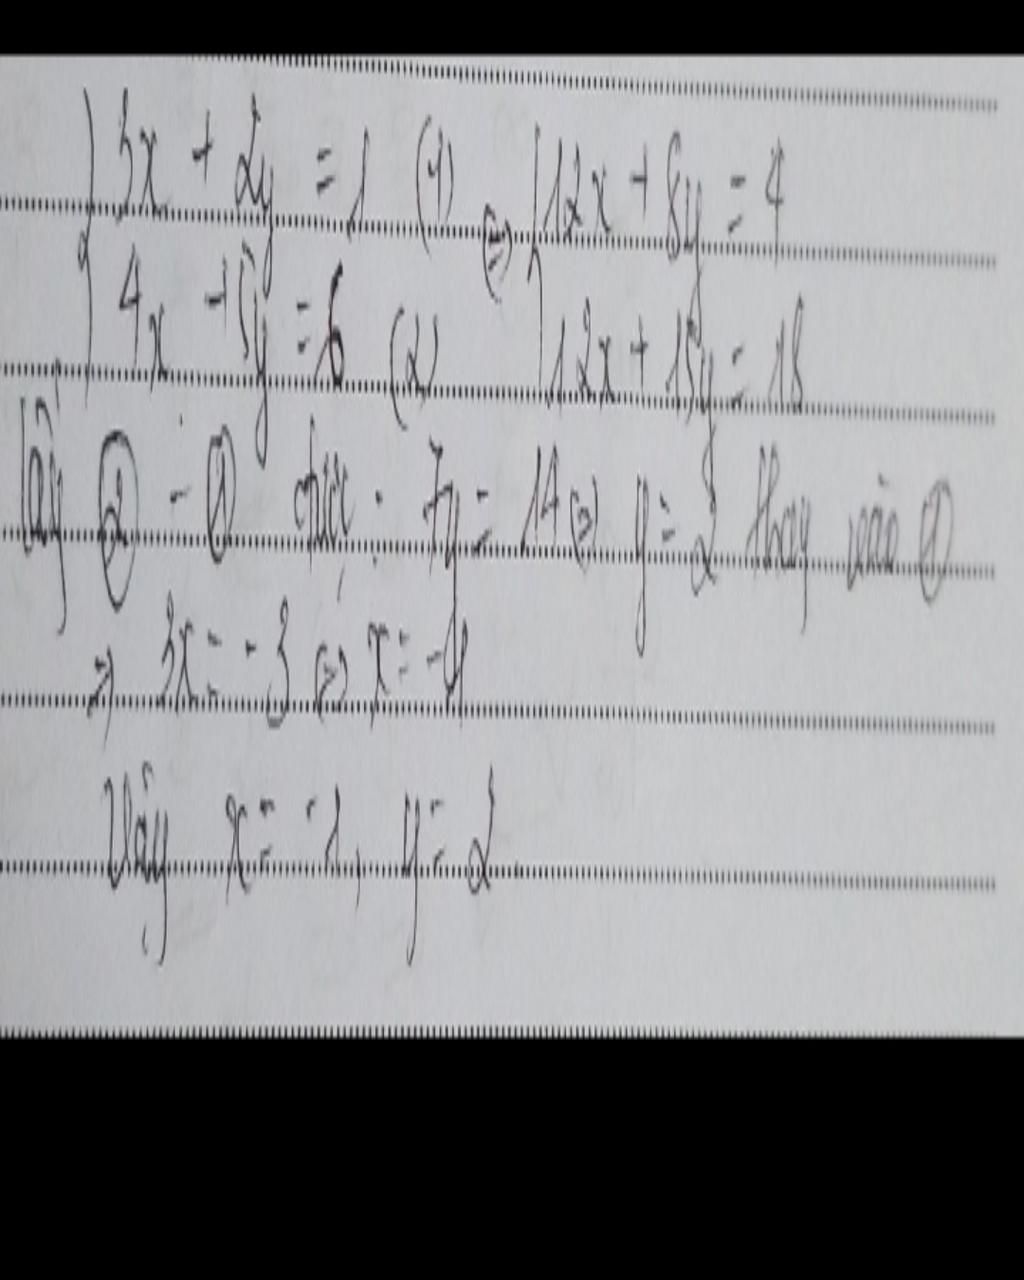 { 3x + 2y = 1 (1) ⇔ { 12x + 8y = 4
{ 4x + 5y = 6 (2) { 12x + 15y = 18
lấy ② - ① được : 7y = 14 ⇔ y = 2 thay vào ①
⇒ 3x = -3 ⇔ x = -1
Vậy x = -1, y = 2